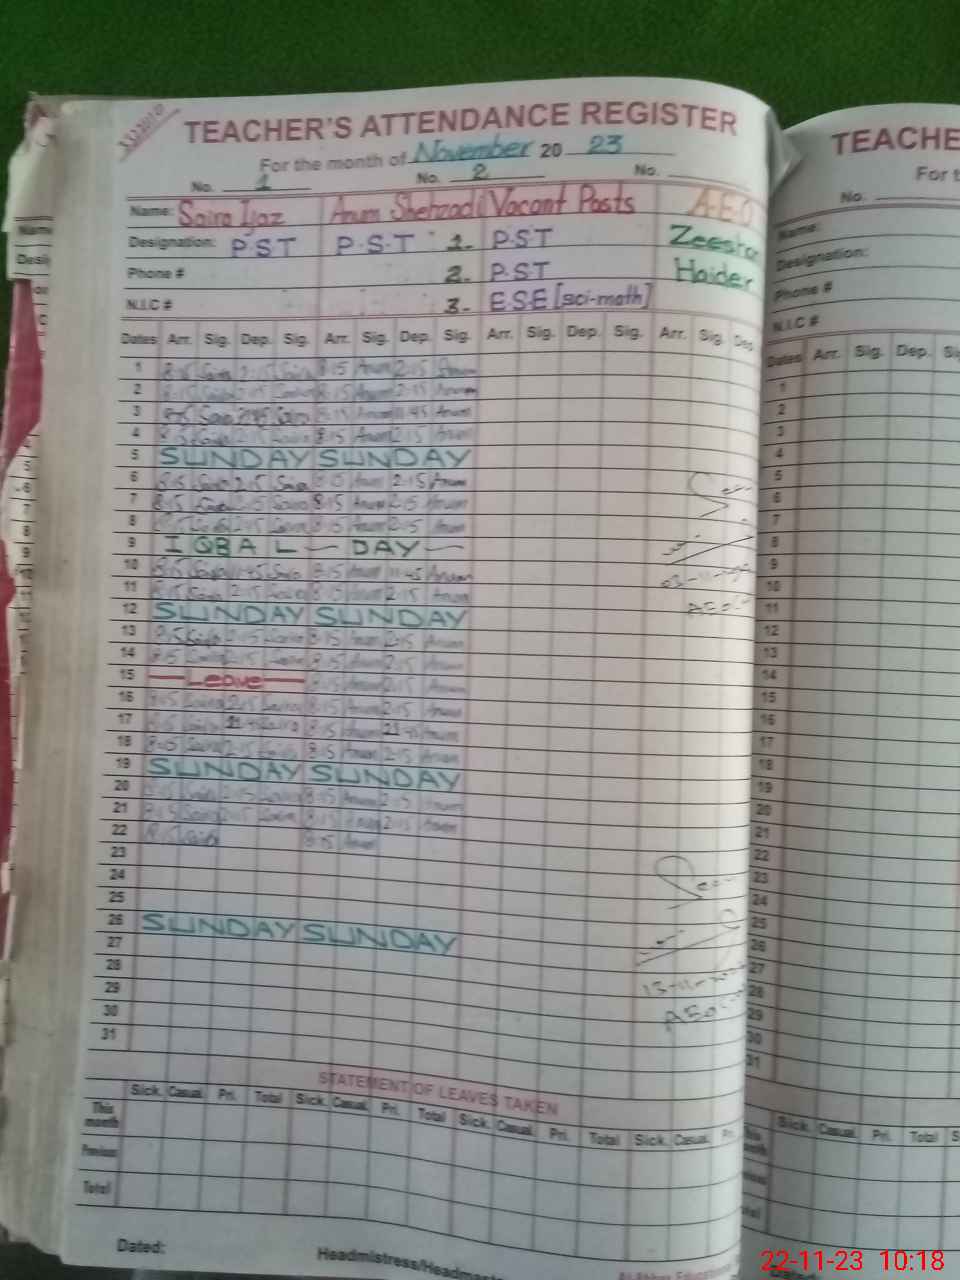 TEACHER'S ATTENDANCE REGISTER
For the month of November 20 23
No. 1 No. 2 No.
Name: Saira Ijaz Anum Shehzadi Vacant Posts A.E.O
Designation: P.S.T P.S.T 1- P.S.T Zeeshan
Phone # 2- P.S.T Haider
N.I.C # 3- E.S.E [sci-math]
Dates Arr. Sig. Dep. Sig. Arr. Sig. Dep. Sig. Arr. Sig. Dep. Sig. Arr. Sig. Dep.
1 8:15 Saira 2:15 Saira 8:15 Anum 2:15 Anum
2 8:15 Saira 2:15 Saira 8:15 Anum 2:15 Anum
3 8:15 Saira 11:45 Saira 8:15 Anum 11:45 Anum
4 8:15 Saira 2:15 Saira 8:15 Anum 2:15 Anum
5 SUNDAY SUNDAY
6 8:15 Saira 2:15 Saira 8:15 Anum 2:15 Anum
7 8:15 Saira 2:15 Saira 8:15 Anum 2:15 Anum
8 8:15 Saira 2:15 Saira 8:15 Anum 2:15 Anum
9 IQBAL — DAY —
10 8:15 Saira 11:45 Saira 8:15 Anum 11:45 Anum
11 8:15 Saira 2:15 Saira 8:15 Anum 2:15 Anum
12 SUNDAY SUNDAY
13 8:15 Saira 2:15 Saira 8:15 Anum 2:15 Anum
14 8:15 Saira 2:15 Saira 8:15 Anum 2:15 Anum
15 — Leave — 8:15 Anum 2:15 Anum
16 8:15 Saira 2:15 Saira 8:15 Anum 2:15 Anum
17 8:15 Saira Saira 8:15 Anum Anum
18 8:15 Saira 2:15 Saira 8:15 Anum 2:15 Anum
19 SUNDAY SUNDAY
20 8:15 Saira 2:15 Saira 8:15 Anum 2:15 Anum
21 8:15 Saira 2:15 Saira 8:15 Anum 2:15 Anum
22 8:15 Saira 8:15 Anum
23
24
25
26 SUNDAY SUNDAY
27
28
29
30
31
STATEMENT OF LEAVES TAKEN
Sick. Casual. Pri. Total Sick. Casual. Pri. Total Sick. Casual. Pri. Total Sick. Casual.
This month
Previous
Total
Dated: Headmistress/Headmas
TEACHE
For t
No.
Name:
Designation:
Phone #
N.I.C #
Dates Arr. Sig. Dep.
1
2
3
4
5
6
7
8
9
10
11
12
13
14
15
16
17
18
19
20
21
22
23
24
25
26
27
28
29
30
31
Sick. Casual. Pri. Total
22-11-23 10:18